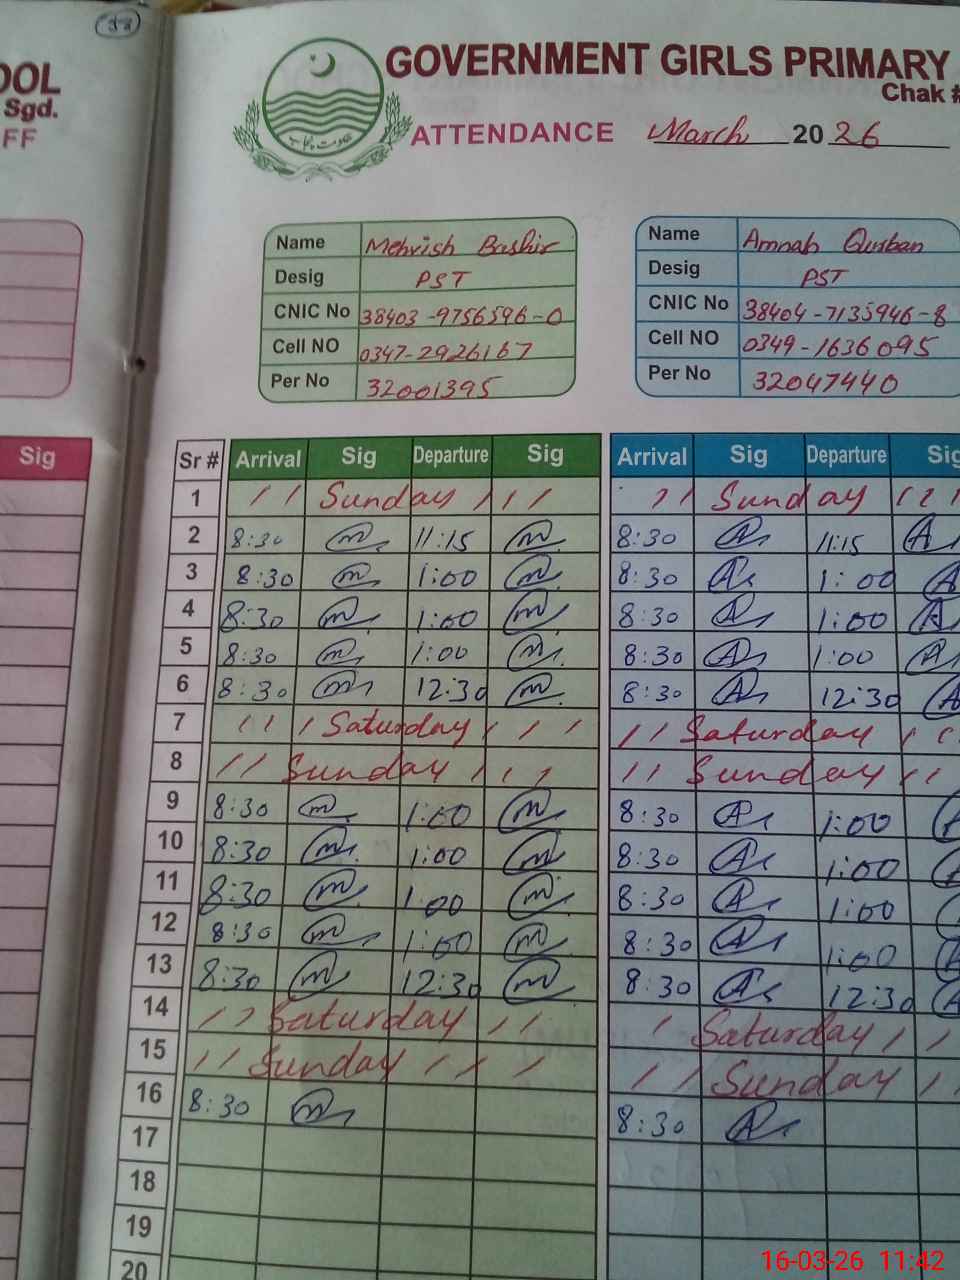 38
OOL
Sgd.
FF
GOVERNMENT GIRLS PRIMARY
Chak #
ATTENDANCE March 2026
حکومت پنجاب
Name Mehvish Bashir
Desig PST
CNIC No 38403-9756596-0
Cell NO 0347-2926167
Per No 32001395
Name Amnah Qurban
Desig PST
CNIC No 38404-7135946-8
Cell NO 0349-1636095
Per No 32047440
Sig
Sr # Arrival Sig Departure Sig Arrival Sig Departure Sig
1 / / Sunday / / / / / Sunday / / /
2 8:30 m 11:15 m 8:30 A 11:15 A
3 8:30 m 1:00 m 8:30 A 1:00 A
4 8:30 m 1:00 m 8:30 A 1:00 A
5 8:30 m 1:00 m 8:30 A 1:00 A
6 8:30 m 12:30 m 8:30 A 12:30 A
7 / / / Saturday / / / / / Saturday / /
8 / / Sunday / / / / / Sunday / /
9 8:30 m 1:00 m 8:30 A 1:00
10 8:30 m 1:00 m 8:30 A 1:00
11 8:30 m 1:00 m 8:30 A 1:00
12 8:30 m 1:00 m 8:30 A 1:00
13 8:30 m 12:30 m 8:30 A 12:30 A
14 / / Saturday / / / Saturday / /
15 / / Sunday / / / / / Sunday / /
16 8:30 m 8:30 A
17
18
19
20
16-03-26 11:42